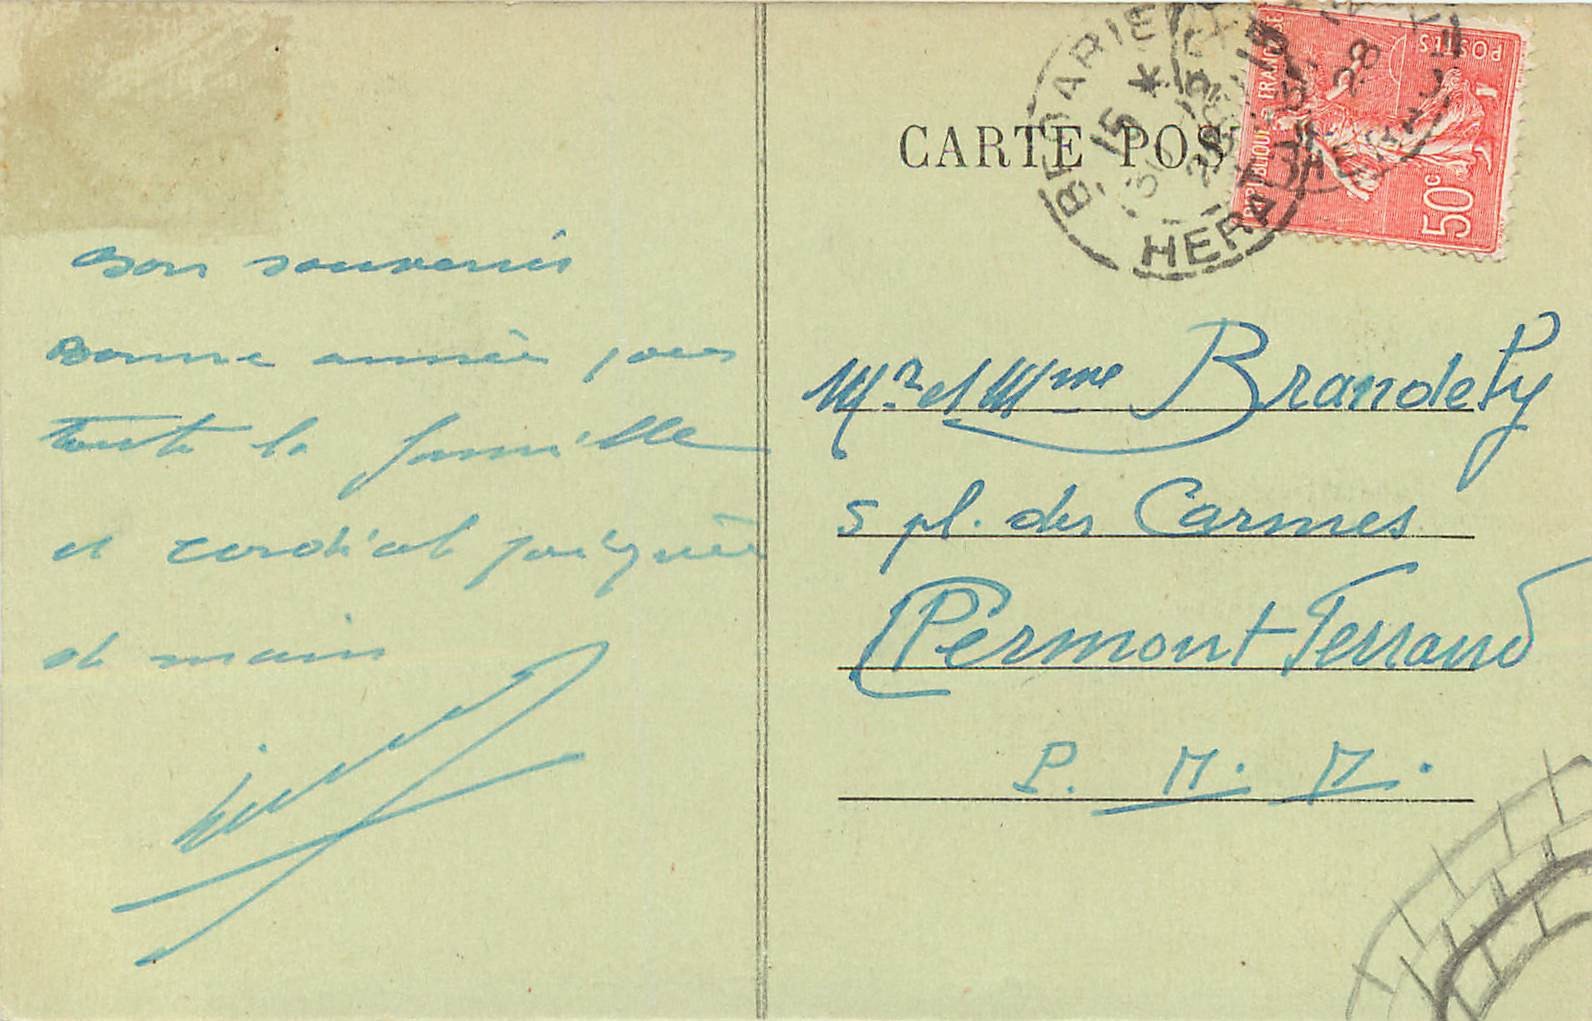 Bon souvenir
Bonne année pour
toute la famille
et cordial poignée
de main
CARTE POS
BEDARIE
15 *
HERAULT
28
REPUBLIQUE FRANÇAISE
POSTES
50c
Mr et Mme Brandely
5 pl. des Carmes
Clermont-Ferrand
P. D. D.